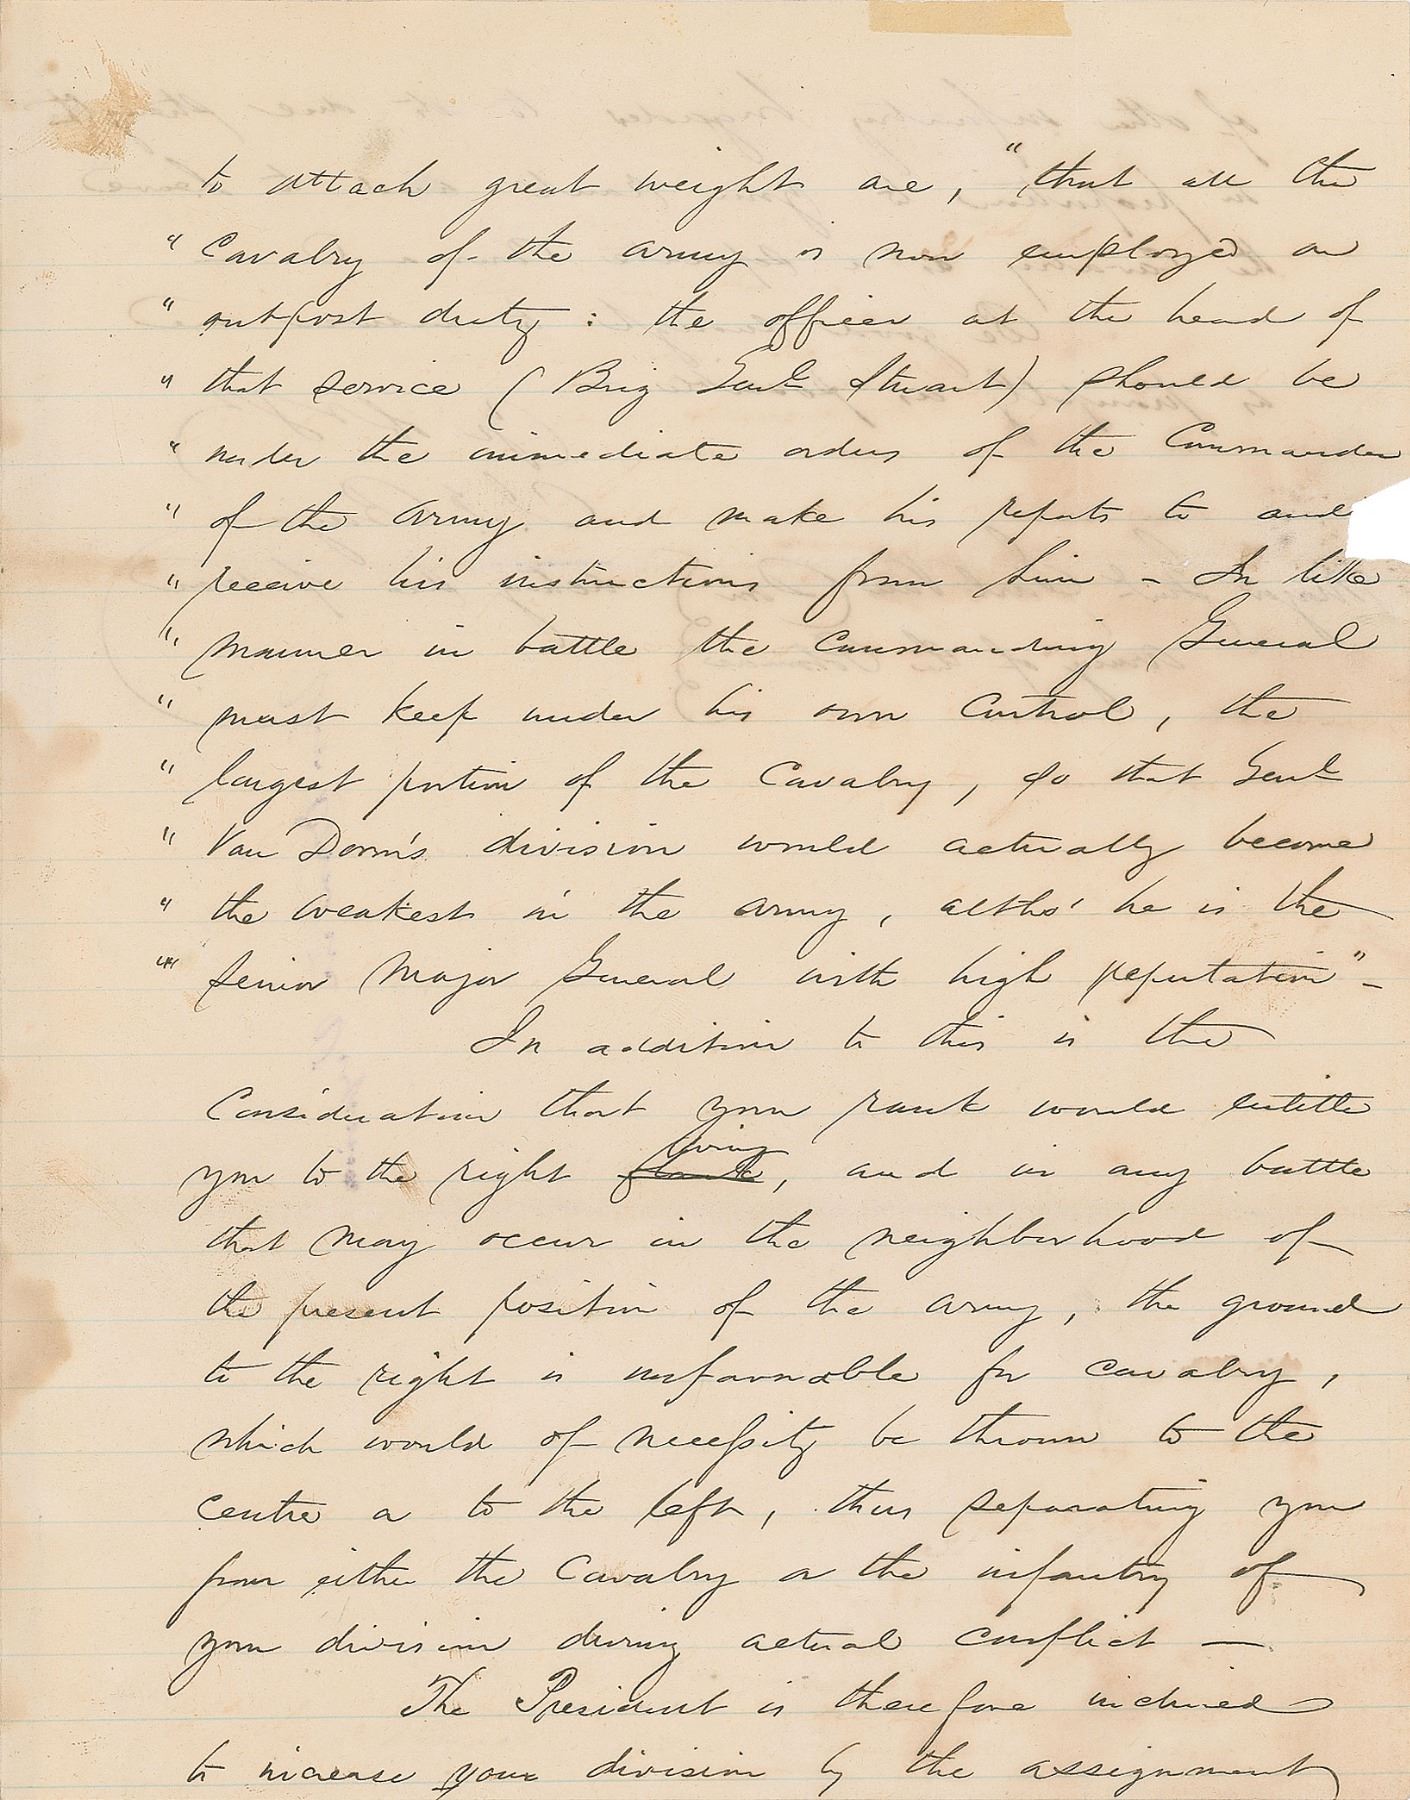 to attach great weight are, "that all the
" Cavalry of the army is now employed on
" outpost duty : the officer at the head of
" that service ( Brig Genl Stuart) should be
" under the immediate orders of the Commander
" of the army and make his reports to and
" receive his instructions from him - In like
" manner in battle the commanding General
" must keep under his own control, the
" largest portion of the Cavalry, so that Genl
" Van Dorn's division would actually become
" the weakest in the army, altho' he is the
" senior Major General with high reputation" -
In addition to this is the
Consideration that your rank would entitle
wing
you to the right flank, and in any battle
that may occur in the neighborhood of
the present position of the army, the ground
to the right is unfavorable for cavalry,
which would of necessity be thrown to the
centre or to the left, thus separating you
from either the Cavalry or the infantry of
your division during actual conflict —
The President is therefore inclined
to increase your division by the assignment